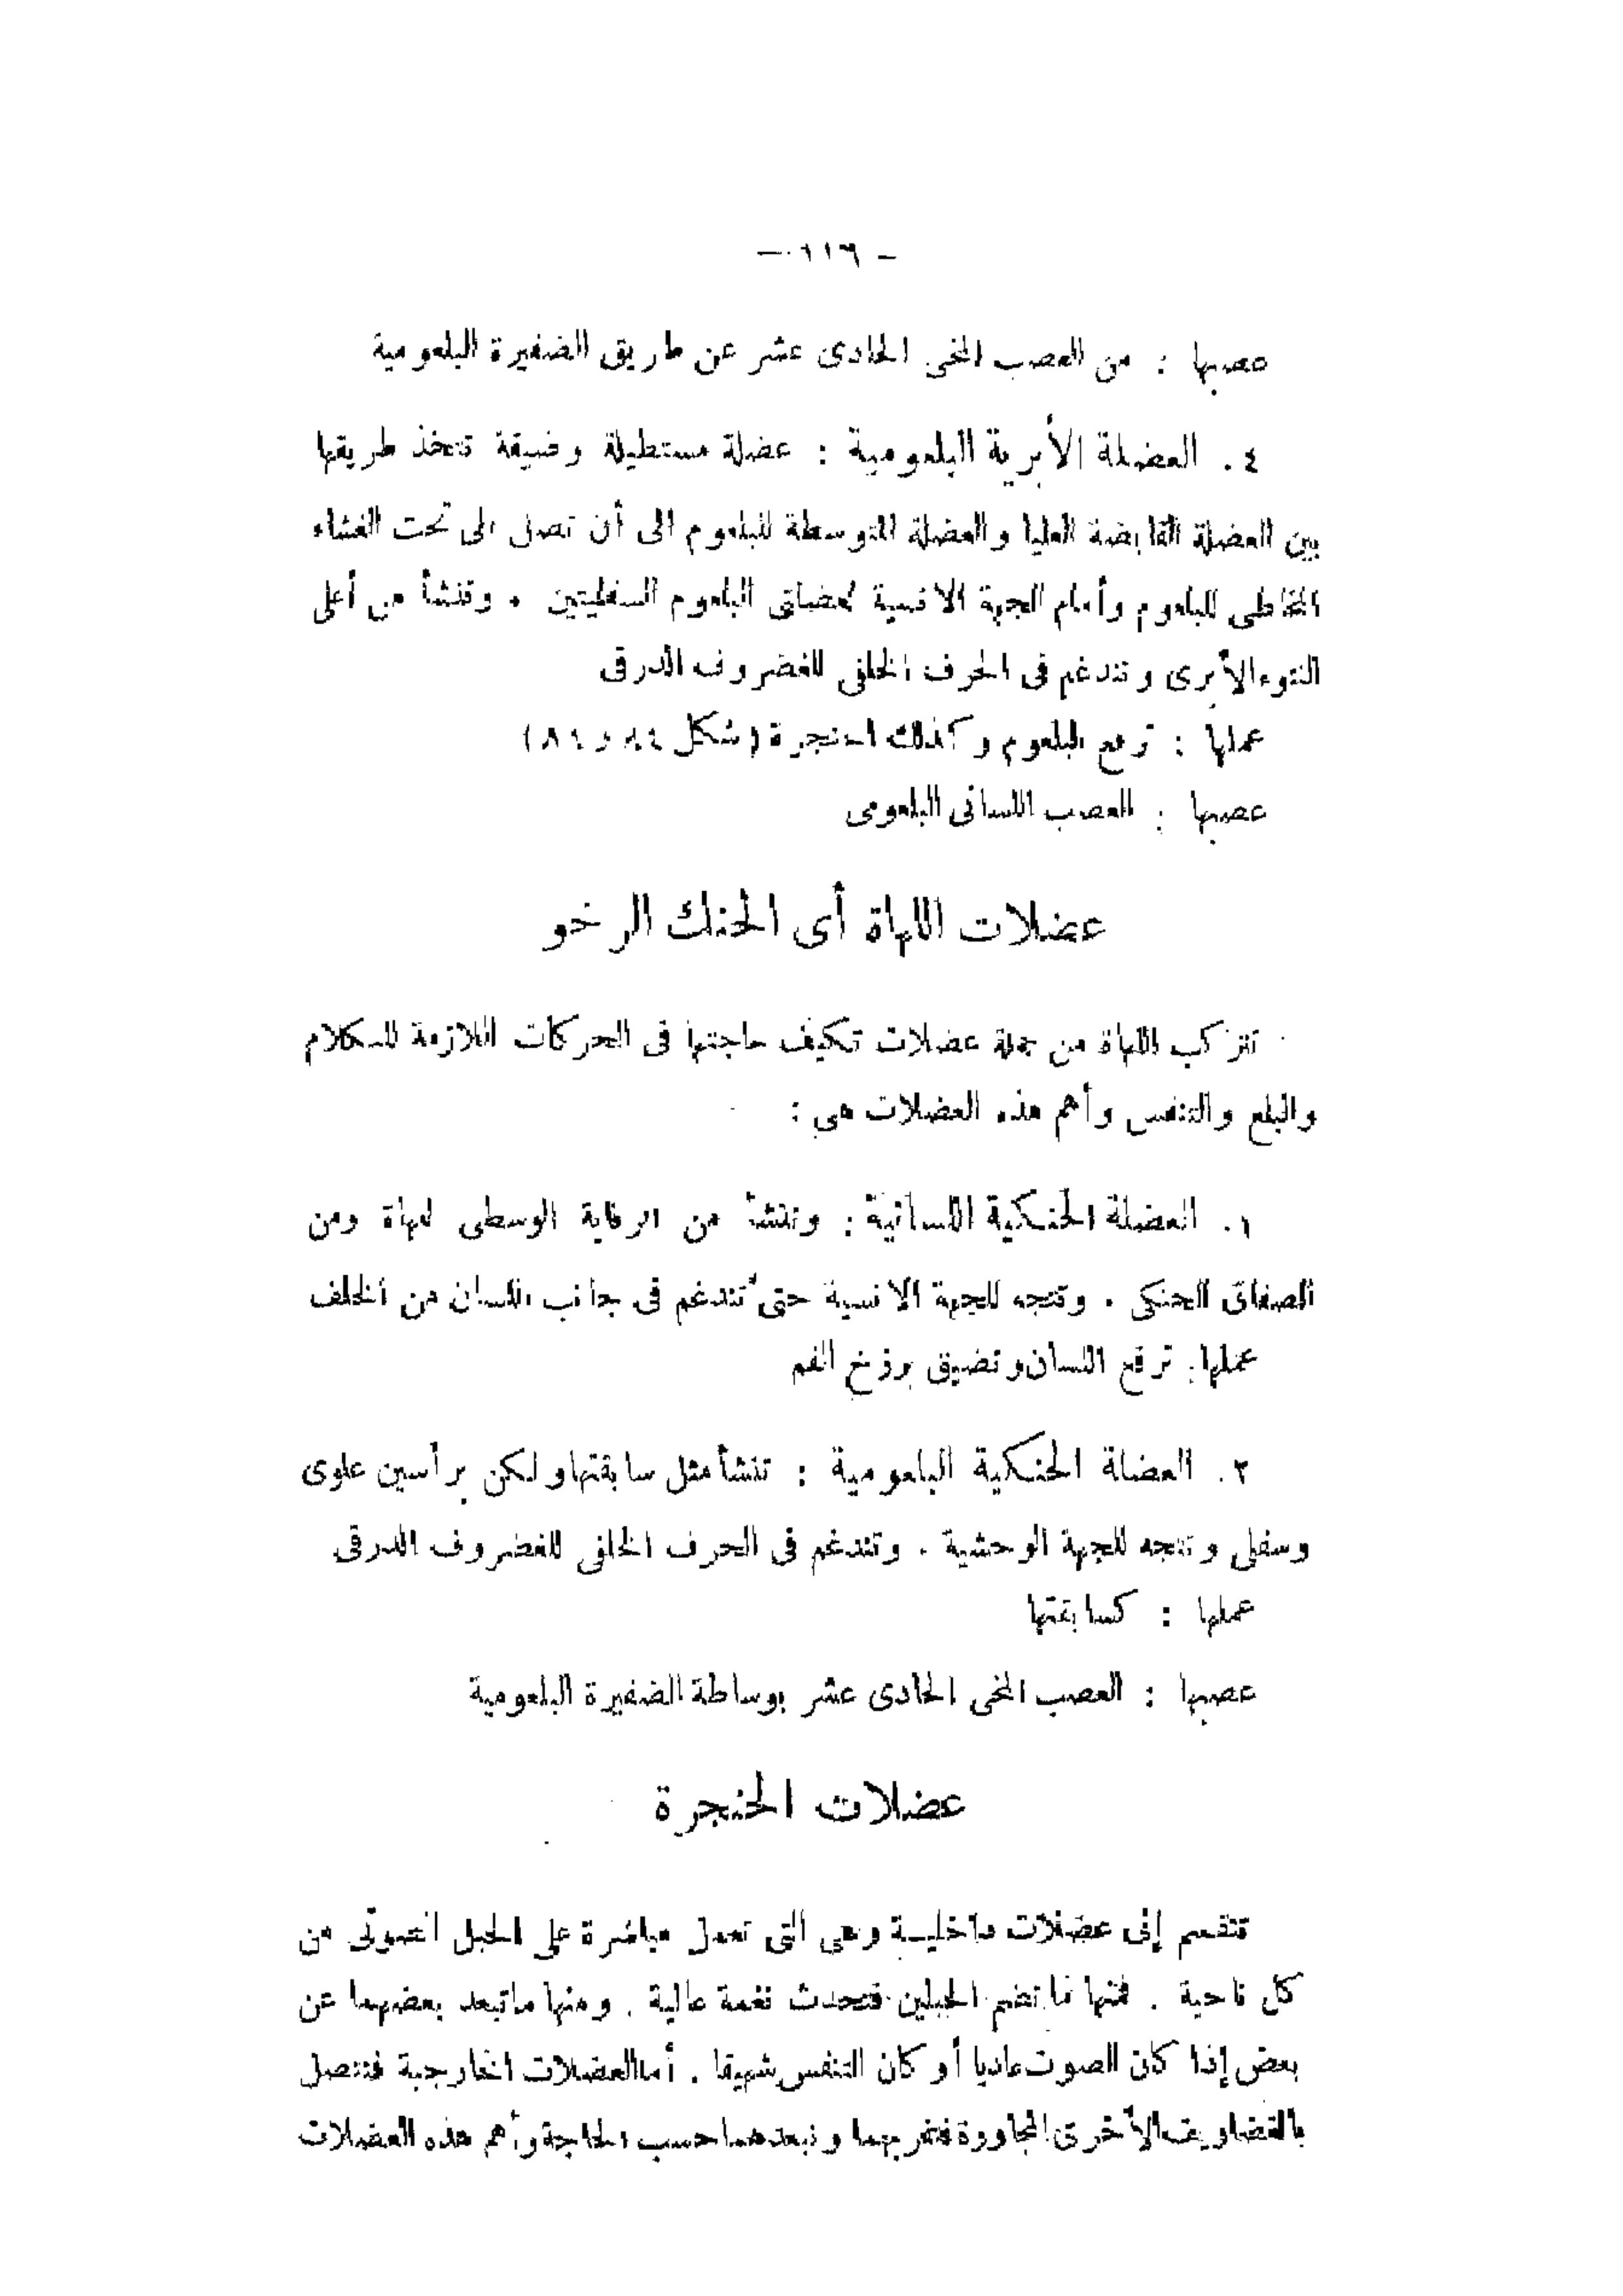 — ١١٦ —
عصبها : من العصب المخى الحادى عشر عن طريق الضفيرة البلعومية
٤. العضلة الأبرية البلعومية : عضلة مستطيلة وضيقة تتخذ طريقها
بين العضلة القابضة العليا والعضلة المتوسطة للبلعوم الى أن تصل الى تحت الغشاء
المخاطى للبلعوم وأمام الجهة الانسية لعضلتى البلعوم السفليتين . وتنشأ من أعلى
النتوء الأبرى وتندغم فى الحرف الخلفى للغضروف الدرقى
عملها : ترفع البلعوم وكذلك الحنجرة (شكل
عصبها : العصب اللسانى البلعومى
عضلات اللهاة أى الحنك الرخو
تتركب اللهاة من جملة عضلات تكيف حاجتها فى الحركات اللازمة للكلام
والبلع والتنفس وأهم هذه العضلات هى :
١. العضلة الحنكية اللسانية : وتنشأ من الوسطى للهاة ومن
الصفاق الحنكى . وتتجه للجهة الانسية حتى تندغم فى جانب اللسان من الخلف
عملها : ترفع اللسان وتضيق برزخ الفم
٢. العضلة الحنكية البلعومية : تنشأ مثل سابقتها ولكن برأسين علوى
وسفلى وتتجه للجهة الوحشية . وتندغم فى الحرف الخلفى للغضروف الدرقى
عملها : كسابقتها
عصبها : العصب المخى الحادى عشر بوساطة الضفيرة البلعومية
عضلات الحنجرة
تنقسم إلى عضلات داخلية وهى التى تعمل مباشرة على الحبل الصوتى من
كل ناحية . فمنها ما تضم الحبلين فتحدث نغمة عالية . ومنها ما تبعد بعضهما عن
بعض إذا كان الصوت عاديا أو كان التنفس شهيقا . أما العضلات الخارجية فتتصل
بالغضاريف الأخرى المجاورة فتقربهما وتبعدهما حسب الحاجة وأهم هذه العضلات